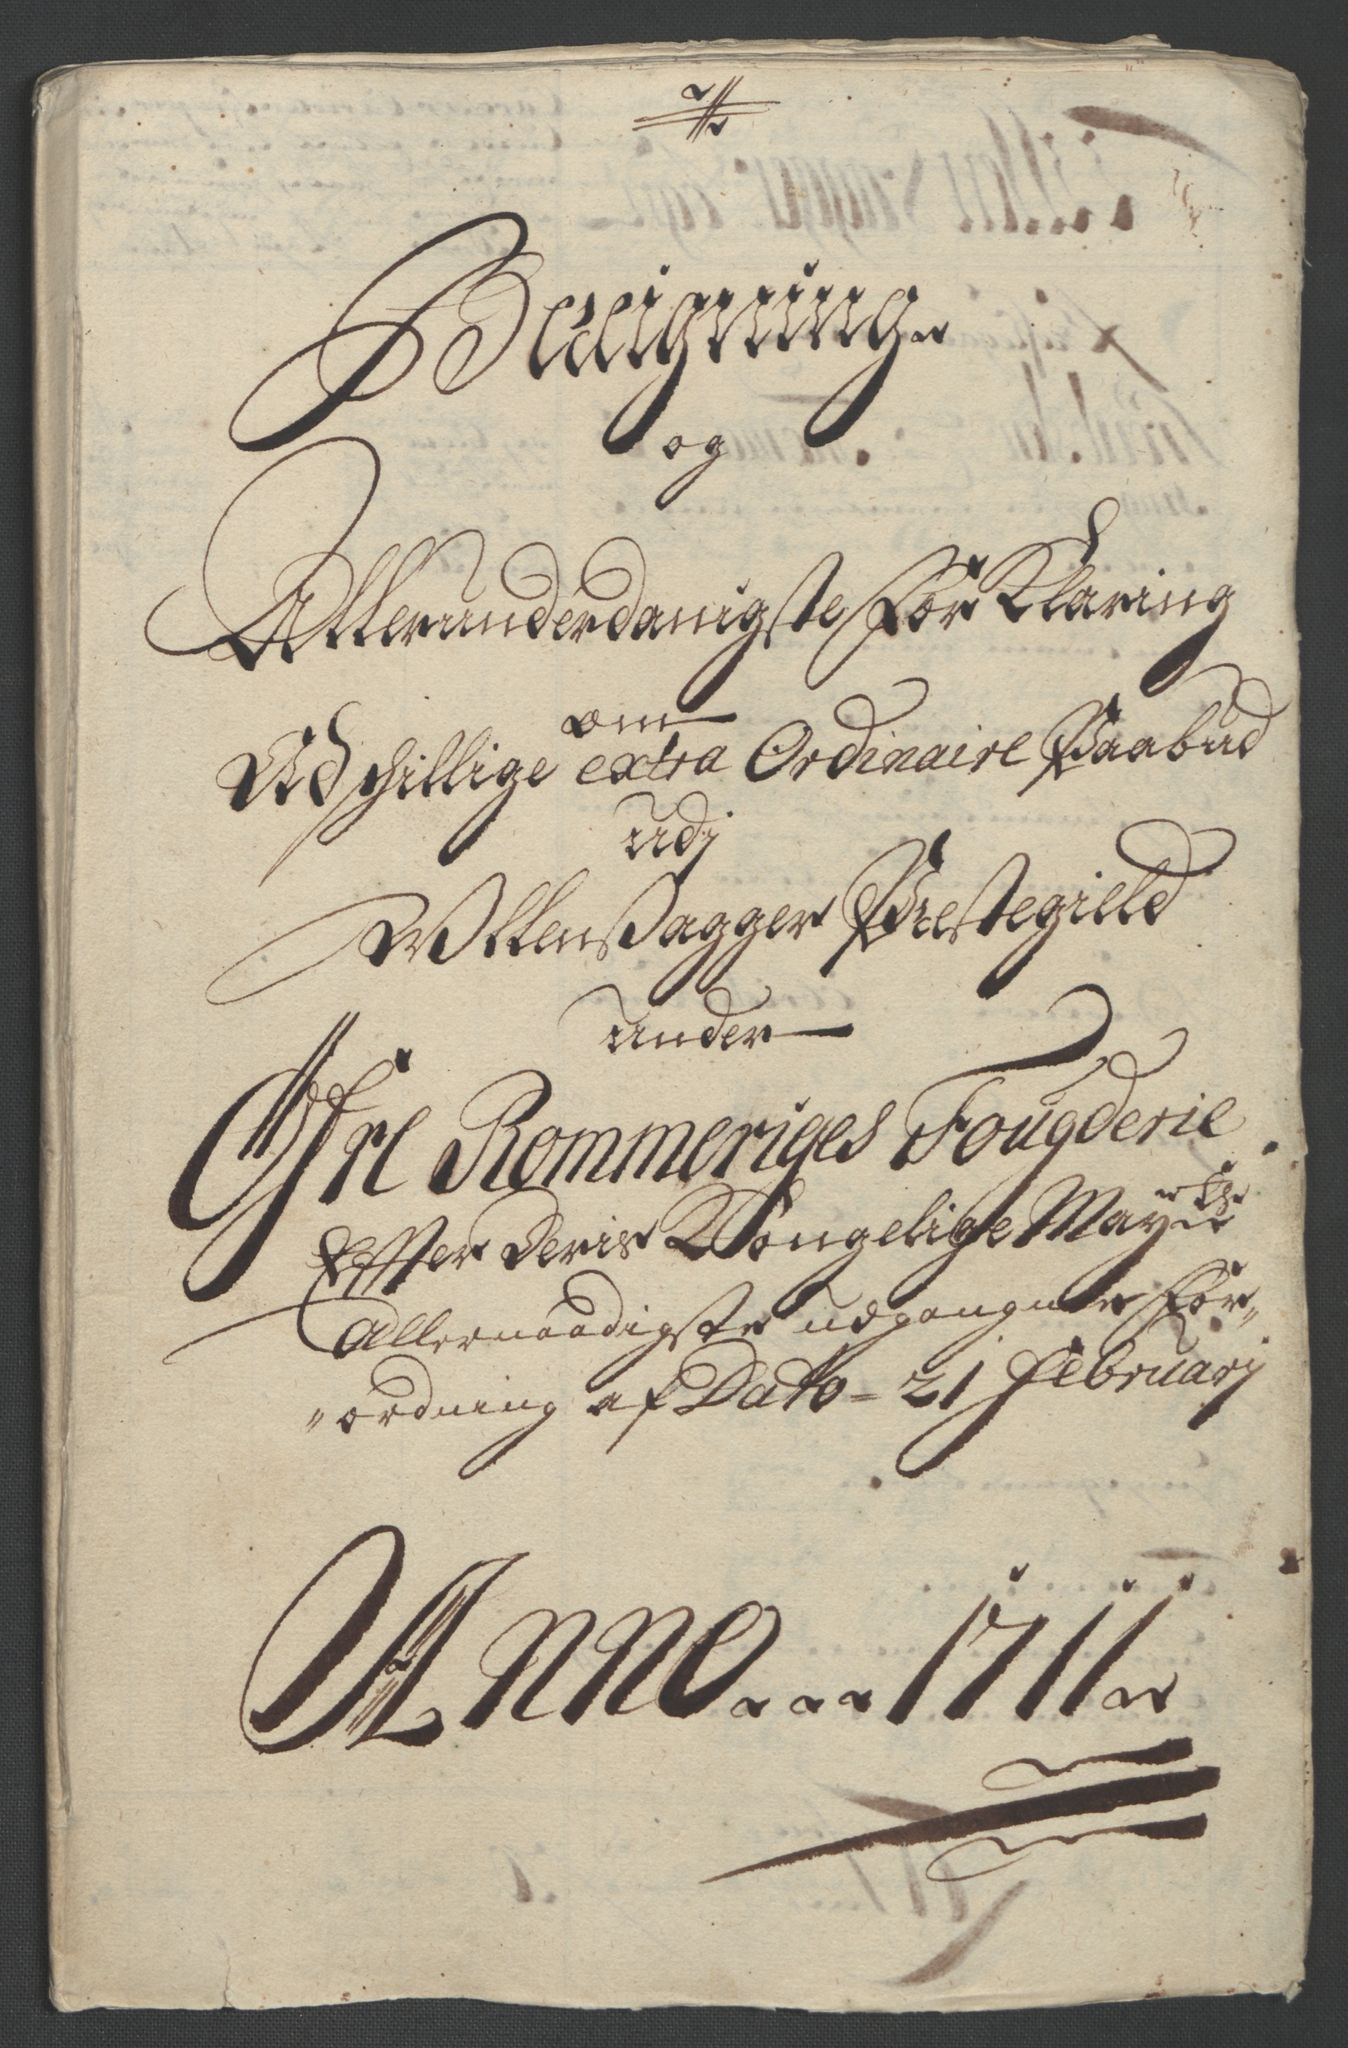 Beligning
og
Allerunderdanigste For Klaring
om
Ad schillige extra Ordinaire Paabud
udj
Ullensagger Præstegield
under
Øfre Rommeriges Fougderie
Effter Deris Kongelige May:ts
Allernaadigste udgangne For„
„ordning af Dato = 21 Februarj
Anno 1711